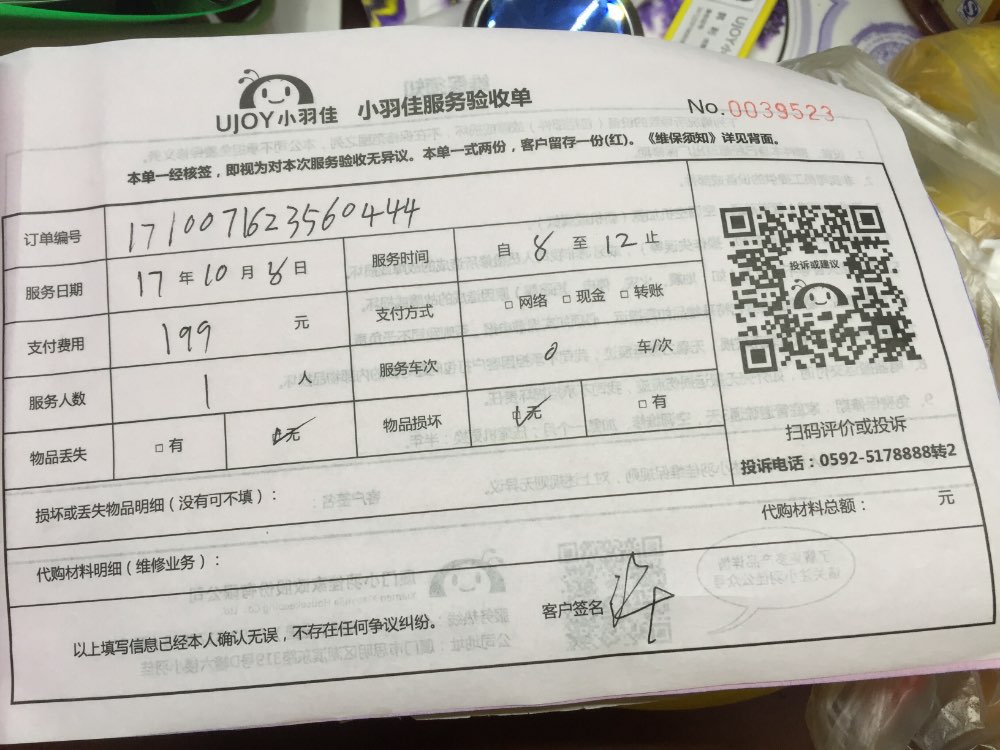 UJOY小羽佳 小羽佳服务验收单
No.0039523
本单一经核签，即视为对本次服务验收无异议。本单一式两份，客户留存一份(红)。《维保须知》详见背面。
订单编号 1710071623560444
服务日期 17年10月8日 服务时间 自8至12止
支付费用 199元 支付方式 □网络 □现金 □转账
服务人数 1人 服务车次 0 车/次
物品丢失 □有 □无 物品损坏 □无 □有
投诉或建议
扫码评价或投诉
投诉电话：0592-5178888转2
损坏或丢失物品明细（没有可不填）：
代购材料总额： 元
代购材料明细（维修业务）：
以上填写信息已经本人确认无误，不存在任何争议纠纷。
客户签名